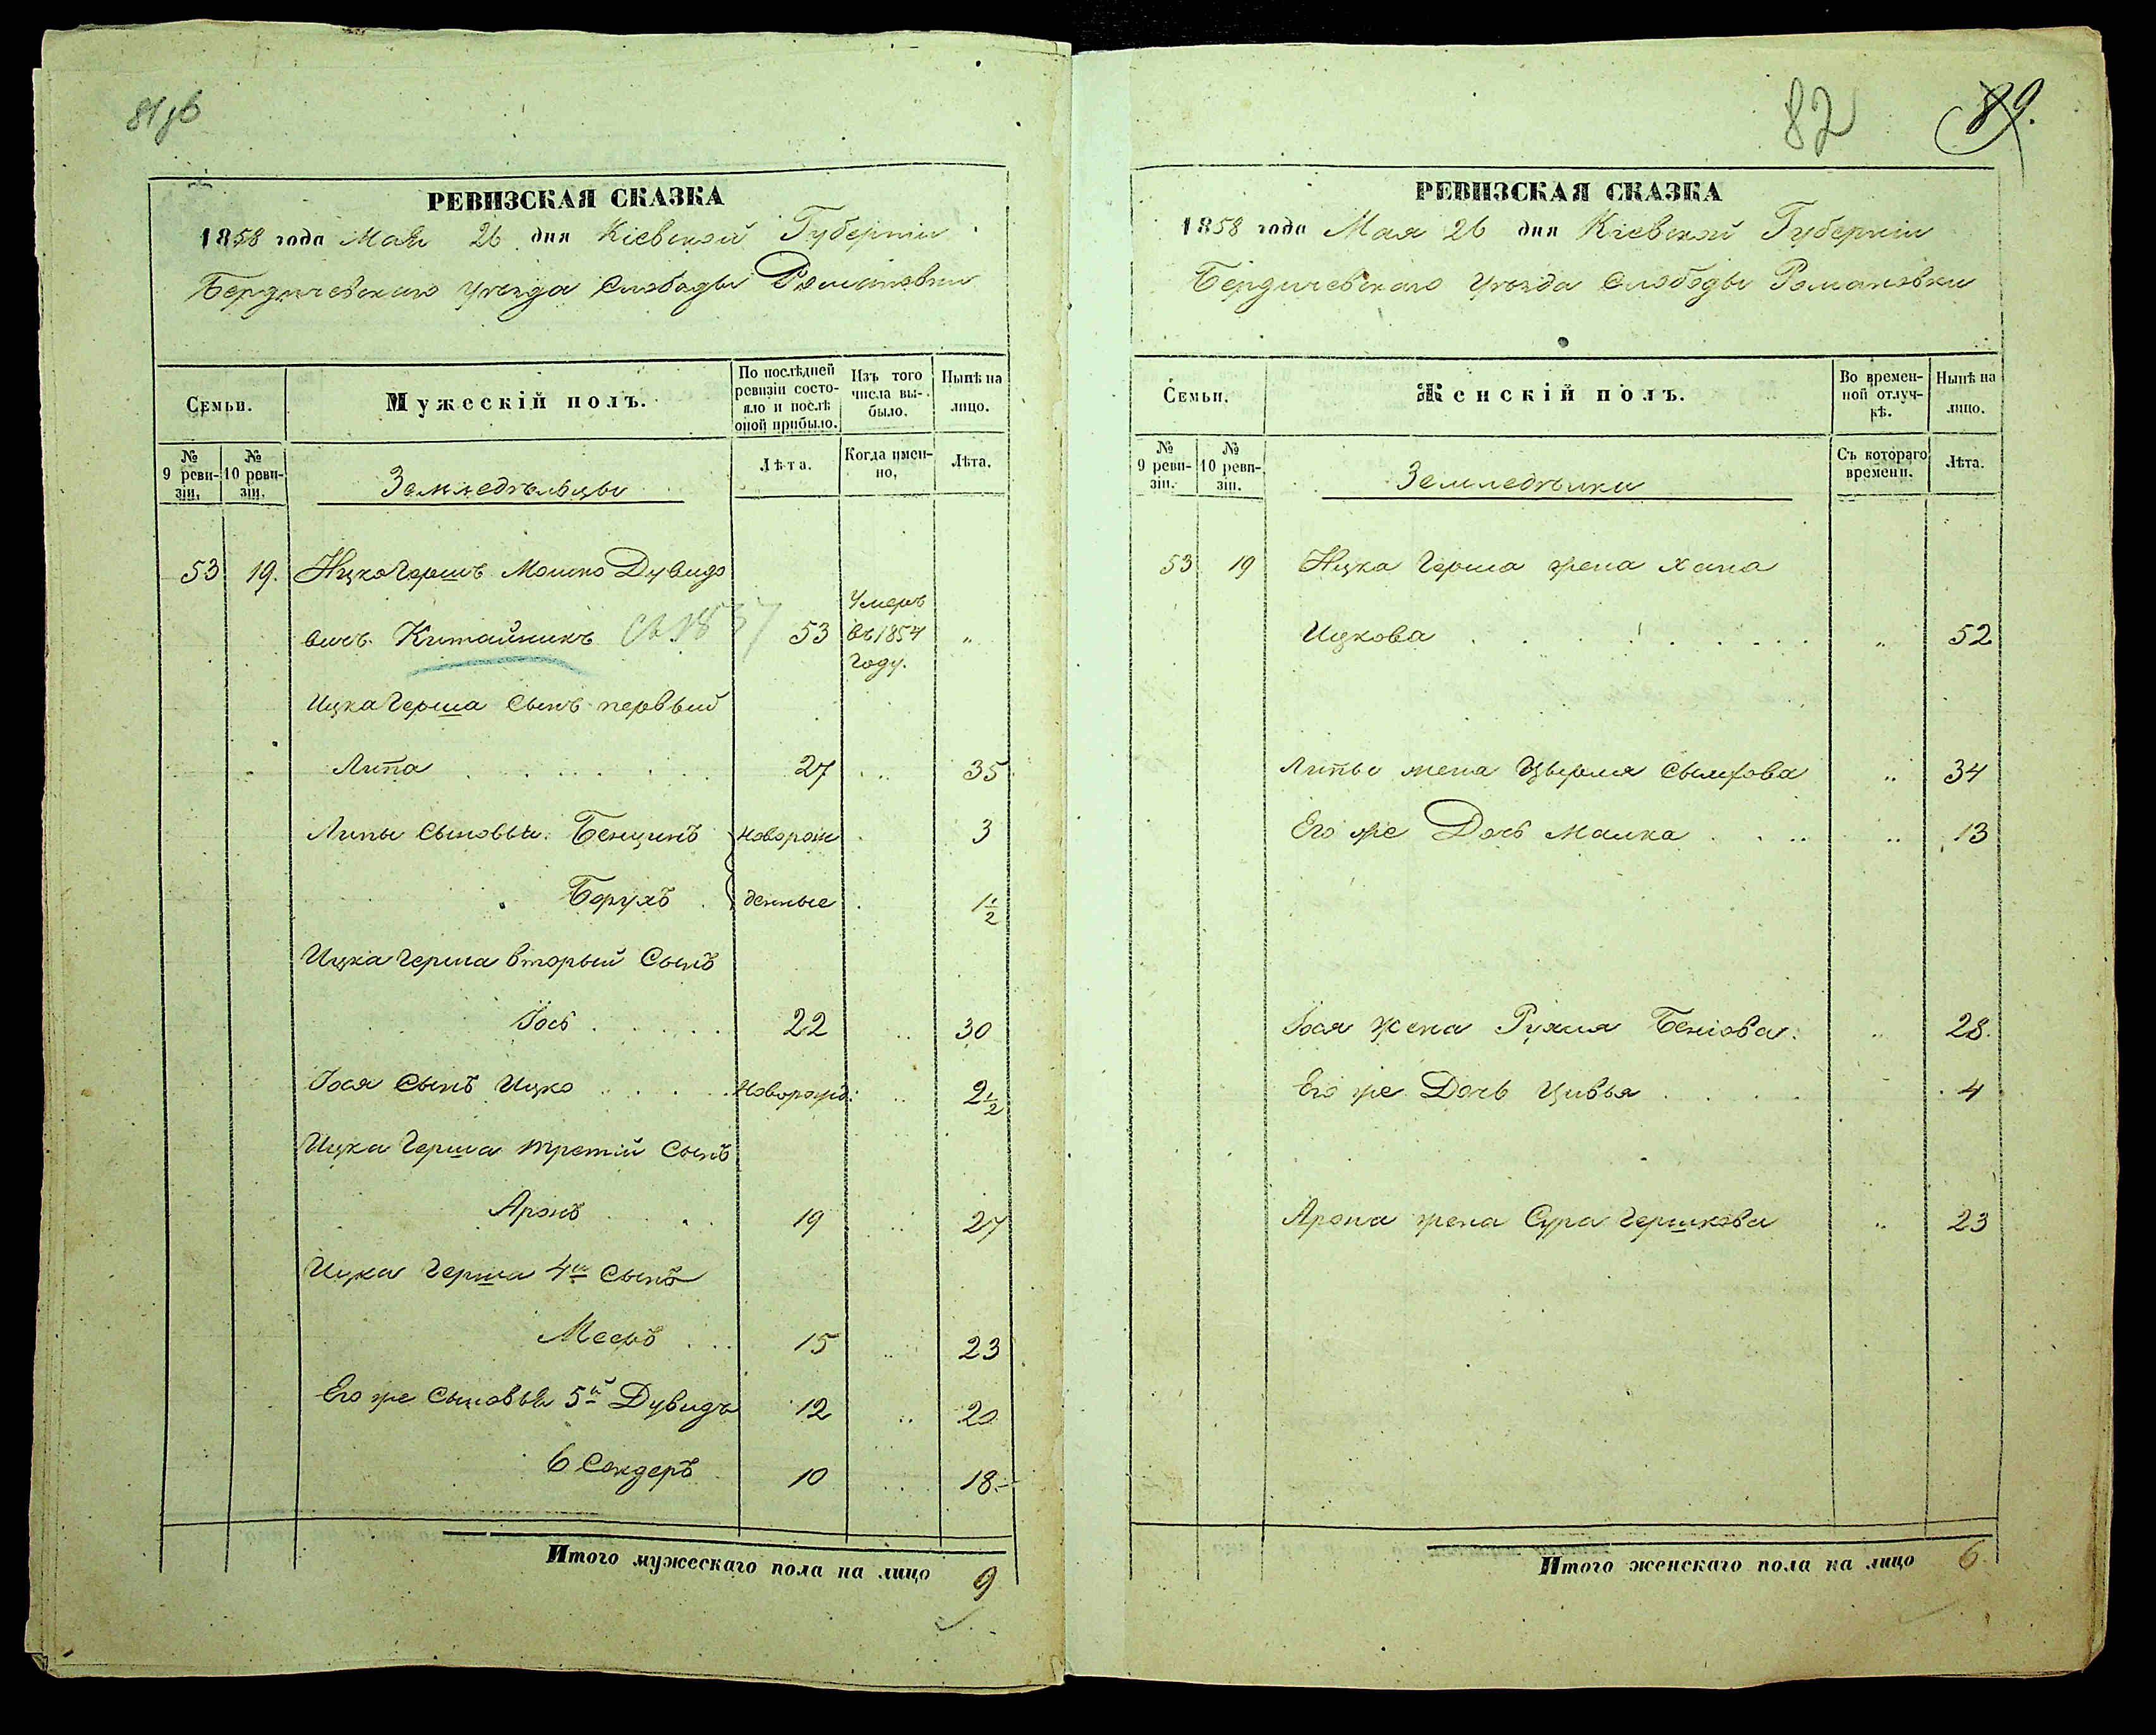 81
РЕВИЗСКАЯ СКАЗКА
1858 года Мая 26 дня Кіевской Губерніи
Бердичевскаго уѣзда Слободы Романовки
Семьи.
Мужескій полъ.
По послѣдней ревизіи состояло и послѣ оной прибыло.
Изъ того числа выбыло.
Нынѣ на лицо.
№ 9 ревизіи.
№ 10 ревизіи.
Земледѣльцы
Лѣта.
Когда именно.
Лѣта.
53 19. Ицко Гершъ Мошко Дувидо
вичъ Китайникъ 53 Умеръ въ 1854 году. „
Ицка Герша Сынъ первый
Липа 27 35
Липы Сыновья: Бенционъ новорож 3
Борухъ денные 1 1/2
Ицка Герша вторый Сынъ
Іось 22 30
Іося Сынъ Ицко новорожд: 2 1/2
Ицка Герша третій Сынъ
Аронъ 19 27
Ицка Герша 4й Сынъ
Мееръ 15 23
Его же Сыновья 5й Дувидъ 12 20
6 Сендеръ 10 18
Итого мужескаго пола на лицо 9
82 89.
РЕВИЗСКАЯ СКАЗКА
1858 года Мая 26 дня Кіевской Губерніи
Бердичевскаго уѣзда Слободы Романовки
Семьи.
Женскій полъ.
Во временной отлучкѣ.
Нынѣ на лицо.
№ 9 ревизіи.
№ 10 ревизіи.
Земледѣлки
Съ котораго времени.
Лѣта.
53 19 Ицка Герша жена Хана
Ицкова „ 52
Липы жена 34
Его же Дочь Малка 13
Іося жена Рухля 28.
Его же Дочь Цивья 4
Арона жена Сура Гершкова 23
Итого женскаго пола на лицо 6.